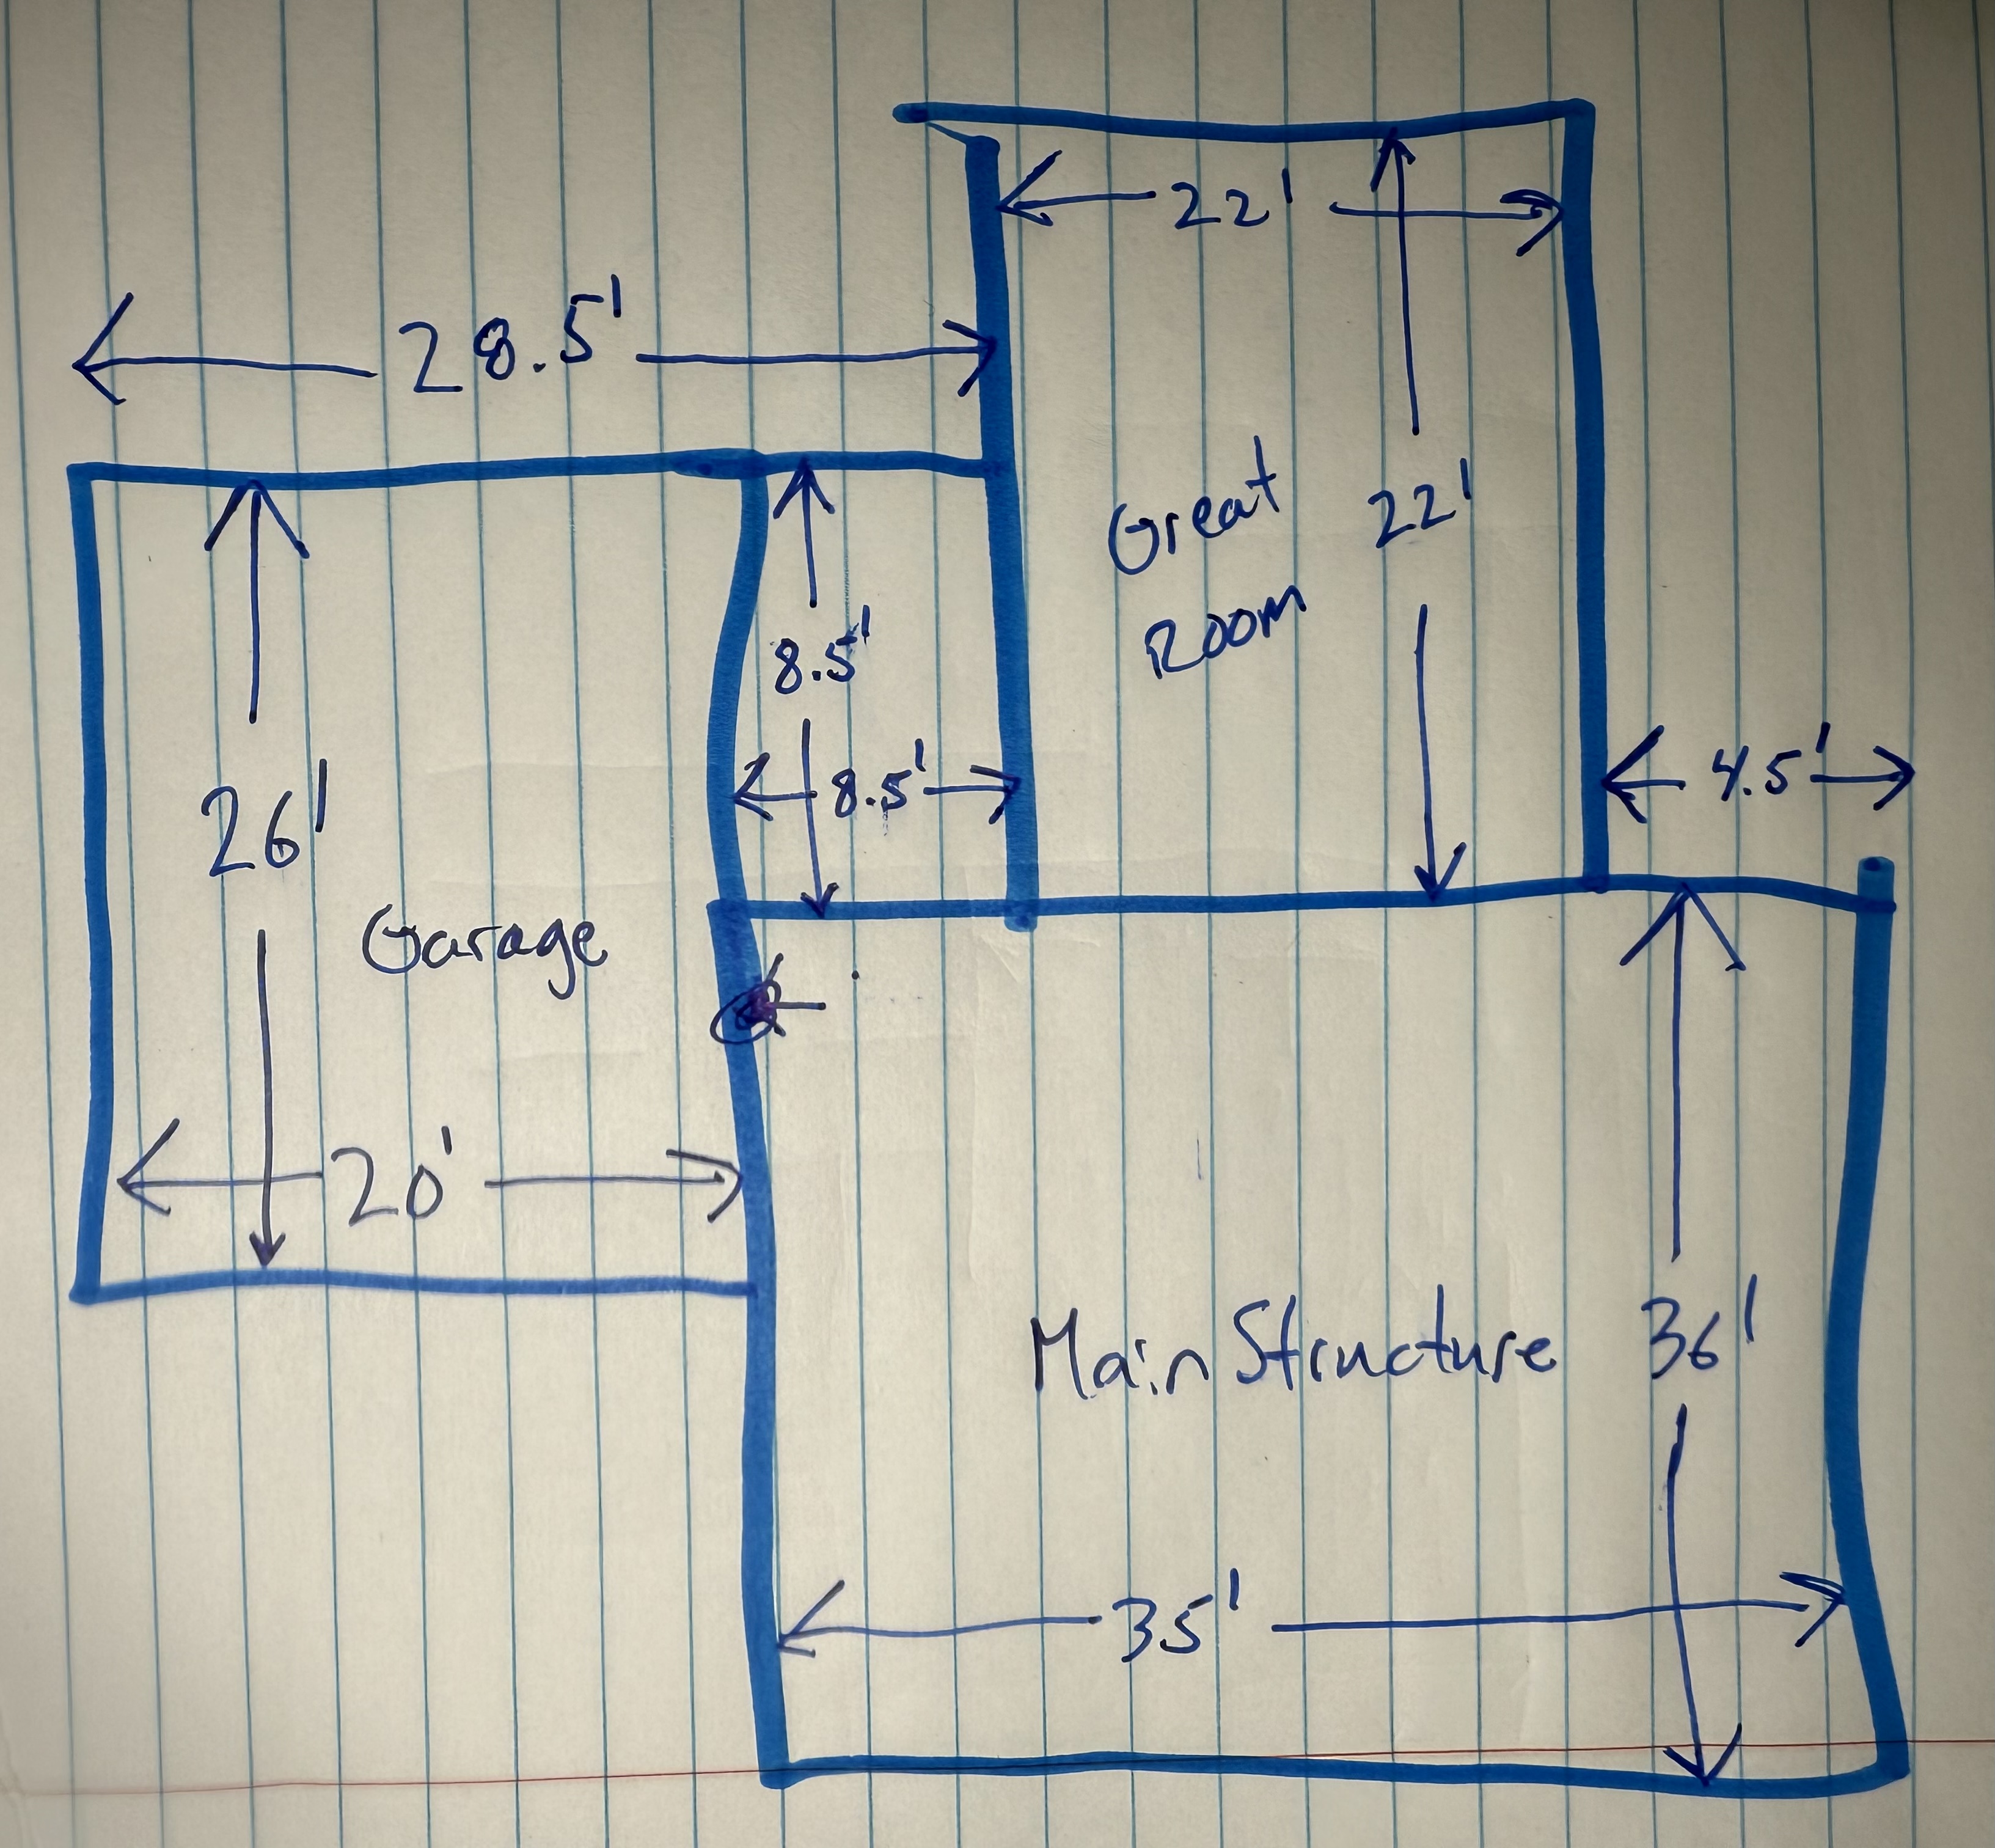 22'
28.5'
Great
Room
22'
8.5'
8.5'
4.5'
26'
Garage
20'
Main Structure
36'
35'